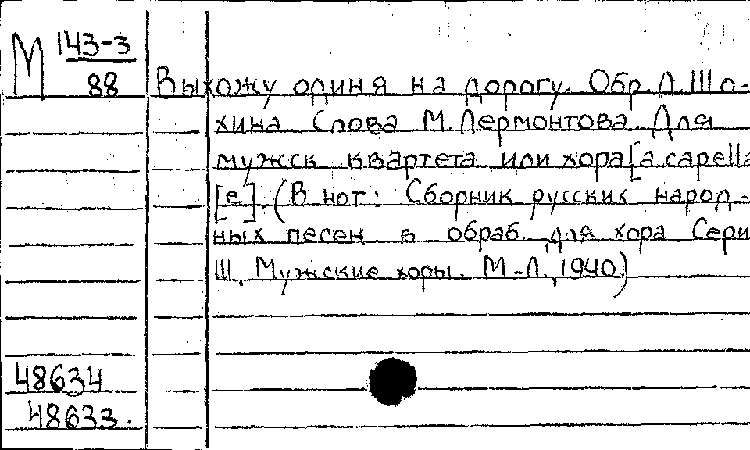 М 143-3
88
Выхожу один я на дорогу. Обр. Л. Шо-
хина Слова М. Лермонтова Для
мужск квартета или хора [a capella
[е]. (В нот: Сборник русских народ-
ных песен в обраб. для хора Сери
III. Мужские хоры. М.-Л., 1940)
48634
48633.